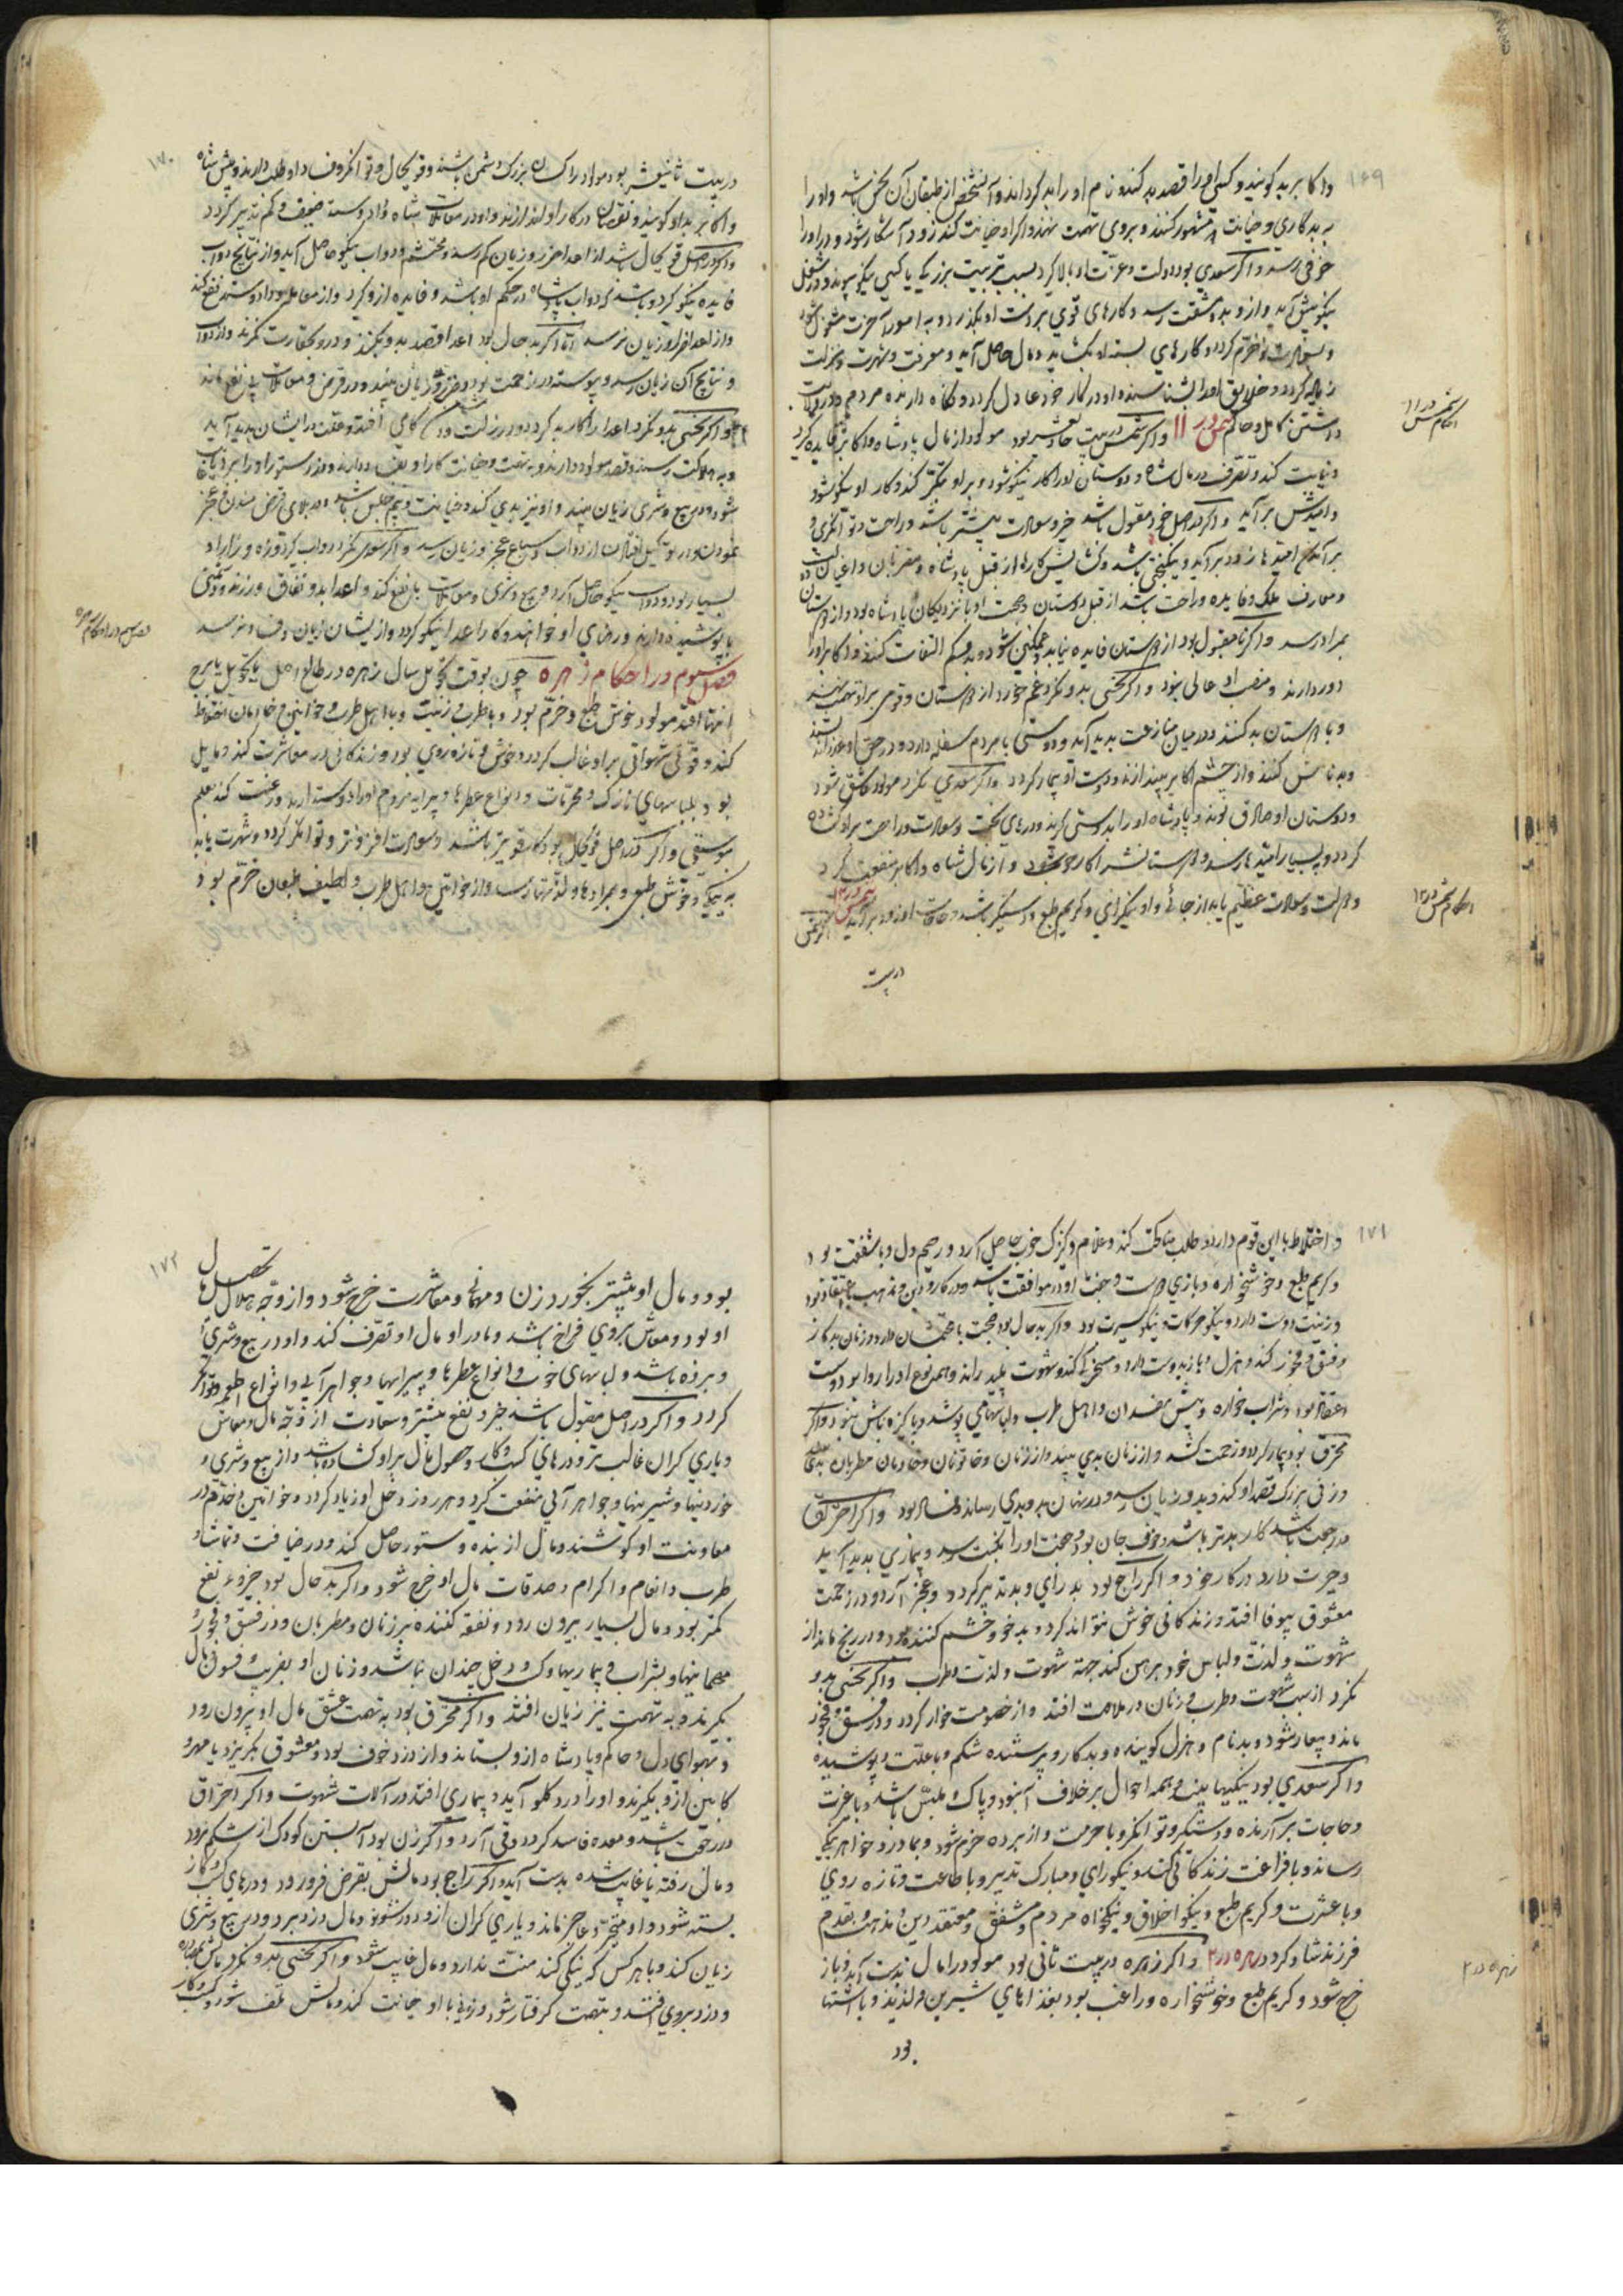 ۱۶۹
واکابر بد کویند و کسی او را قصد بد کند و نام او را بد کرداند و آن شخص از طبقه آن نحس باشد و او را
به بدکاری و خیانت مشهور کنند و بروی تهمت نهند و اکر او خیانت کند زود آشکار شود و
خوفی رسد و اکر سعدی بود دولت و عزّت او بالا کیرد بسبب تربیت بزرکی یا کسی نیکو
نیکو پیش آید و ازو بدو شفقت رسد و کارهای قوی بر دست او بکذرد و به امور آخرت مشغول شود
و کارهای بسته او بکشاید و مال حاصل آید و معرفت و شهرت و منزلت
زیاده کردد و خلایق او را بشناسند و او در کار خود عادل کردد و نکاه دارنده مردم
داشتن کامل و حاکم شمس در ۱۱ و اکر شمس در بیت حادیعشر بود مولود از مال پادشاه و اکابر فایده کیرد
و نیابت کند و تصرّف در مال شاه و دوستان او را کار نیکو شود و بر او تکبّر کند و کار او نیکو شود
و امیدش برآید و اکر در اصل خود مقبول باشد خیر و سعادت بیشتر باشد و راحت و توانکری و
برآمدن امیدها زود برآید و نیکبختی باشد و کشایش کارها از قبل پادشاه و مقربان و اعیان
و معارف ملک و فایده و راحت باشد از قبل دوستان و صحبت او با نزدیکان پادشاه بود و از دوستان
بمراد رسد و اکر نامقبول بود از دوستان فایده نیابد و غمکین شود و بدو کم التفات کنند و اکابر او را
دور دارند و منصب او عالی نبود و اکر نحسی بدو نکرد غم خورد از دوستان و قومی بر او تهمت نهند
و با دوستان بد کنند و در میان منازعت پدید آید و دوستی با مردم سفله دارد و در حق او
و بد نامش کنند و از چشم اکابر بیندازند و دوست او بیمار کردد و اکر سعدی نکرد مولود عاشق شود
و دوستان او صادق بوند و پادشاه او را بدوستی کیرد و درهای بخت و سعادت و راحت بر او کشاده
کردد و بسیار امیدها رسد و دوستانش را کار خوب شود و از مال شاه و اکابر منفعت کیرد
و دولت و سعادت عظیم یابد از جائی و او نیکرای و کریم طبع و دستکیر باشد و حاجات او زود برآید شمس در ۱۲ اکر شمس
در بیت
احکام شمس در ۱۱
احکام شمس در ۱۲
۱۷۰
در بیت ثانیعشر بود مولود را کسان بزرک دشمن باشند و قویحال و توانکر و فساد او طلب دارند و پیش شاه
و اکابر بد او کویند و نقصان در کار او اندازند و او در معاملات شاه و داد و ستد ضعیف و کم تدبیر کردد
و اکر در اصل قویحال باشد از اعدا ضرر و زیان کم رسد و محتشم و دواب نیکو حاصل آید و از نتایج دواب
فایده نیکو کیرد و باشد که دواب پادشاه در حکم او باشد و فایده ازو کیرد و از معامله و داد و ستد نفع کند
و از اعدا ضرر و زیان نرسد امّا اکر بد حال بود اعدا قصد بدو کنند و درو بحقارت نکرند و از دواب
و نتایج آن زیان رسد و پیوسته در زحمت بود و ضرر و زیان بیند و در قرض و معاملات بی نفع ماند
و اکر نحسی بدو نکرد اعدا را کار بد کردد و در زلت و در کاهی افتد و عقت در ایشان پدید آید
و به هلاکت رسند و قصد مولود دارند و به تهمت و خیانت کار او بقسف دارند و دزد ستور او را ببرد یا
شود و در بیع و شری زیان بیند و او نیز بدی کند و خیانت و بیم حبس باشد و در بلای قرض مبتلا و عجز
نمودن و از دواب و سباع عجز و زیان رسد و اکر سعدی نکرد دواب کیرد
بسیار بود و دواب نیکو حاصل آرد و بیع و شری و معاملات با نفع کند و اعدا بد و نفاق ورزند و دشمنی
با پوشیده دارند و رضای او خواهند و کار اعدا نیکو کردد و از ایشان زیان و خوف نرسد
فصل سیوم در احکام زهره چون بوقت تحویل سال زهره در طالع اصل یا تحویل یا برج
انتها افتد مولود خوش طبع و خرّم بود و با طرب و زینت و با اهل طرب و خواتین و خادمان اختلاط
کند و قوّت شهوانی بر او غالب کردد و خوش و تازه روی بود و زندکانی در معاشرت کند و مایل
بود بلباسهای نازک و محرّمات و انواع عطرها و پیرایه مردم او را دوست دارند و رغبت کند بعلم
موسیقی و اکر در اصل قویحال بود کار قویتر باشد و سعادت افزونتر و توانکر کردد و شهرت یابد
به نیکی و خوش طبعی و بمرادها و لذّتها رسد و از خواتین و اهل طرب و لطیف طبعان خرّم بود
فصل سیوم در احکام زهره
۱۷۱
و اختلاط با این قوم دارد و طلب مناکحت کند و غلام و کنیزک خوب حاصل آرد و رحیم دل و با شفقت بود
و کریم طبع و خوشخواره و بازی دوست و جفت او در موافقت باشد و در کار دین و مذهب با اعتقاد بود
و زینت دوست دارد و نیکو حرکات و نیکو سیرت بود و اکر بد حال بود صحبت با مخنثان دارد و زنان بدکار
و فسق و فجور کند و هزل و بازی دوست دارد و مسخرکی کند و شهوت پلید راند و همه نوع او را روا بود و سست
اعتقاد بود و شراب خواره و پیش مفسدان و اهل طرب و لباسهای پوشد و پاکیزه باش نبود و اکر
محترق بود بیمار کردد و زحمت کشد و از زنان بدی بیند و از زنان و خاتونان و خادمان مطربان بدی
و زنی بزرک قصد او کند و بدو زیان رسد و در نهان بدو بدی رساند و فساد بود و اکر احتراق
در رجعت باشد کار بدتر باشد و خوف جان بود و محنت او را نکبت رسد و بیماری پدید آید
و حیرت دارد در کار خود و اکر راجع بود بد رای و بد تدبیر کردد و عجز آرد و در زحمت
معشوق بیوفا افتد و زندکانی خوش نتواند کرد و بد خو و خشم کننده بود و در رنج ماند از
شهوت و لذّت و لباس خود برهن کند جهة شهوت و لذّت و طرب و اکر نحسی بدو
نکرد از سبب شهوت و طرب و زنان در ملامت افتد و از خصومت خوار کردد و در فسق و فجور
ماند و بیعار شود و بدنام و هزل کوینده و بدکار و پرستنده شکم و با علّت پوشیده
و اکر سعدی بود نیکیها بیند و همه احوال بر خلاف آن بود و پاک و ملبّس باشد و با عزت
و حاجات برآرنده و دستکیر و توانکر و با حرمت و از برده خرّم شود و بمادر و خواهر نیکی
رساند و با فراغت زندکانی کند و نیکورای و مبارک تدبیر و با طاعت و تازه روی
و با عشرت و کریم طبع و نیکو اخلاق و نیکخواه مردم و مشفق و معتقد دین و مذهب و بقدم
فرزند شاد کردد زهره در ۲ و اکر زهره در بیت ثانی بود مولود را مال بدست آید و باز
خرج شود و کریم طبع و خوشخواره و راغب بود بغذاهای شیرین و لذیذ و با اشتها
بود
زهره در ۲
۱۷۲
بود و مال او بیشتر بخورد زن و مهمانی و معاشرت خرج شود و از وجه حلال تحصیل مال
او بود و معاش بروی فراخ باشد و مادر او مال او تصرّف کند و او در بیع و شری
و برده باشد و لباسهای خوب و انواع عطرها و پیرایها و جواهر آبی و انواع اطعمه و توانکر
کردد و اکر در اصل مقبول باشد خیر و نفع بیشتر و سعادت از وجه مال و معاش
و یاری کران غالب تر و درهای کسب و کار و حصول مال بر او کشاده باشد و از بیع و شری و
خوردنیها و شیرینیها و جواهر آبی منفعت کیرد و هر روز دخل او زیاد کردد و خواتین و خدّام در
معاونت او کوشند و مال از بنده و ستور حاصل کند و در ضیافت و تماشا و
طرب و انعام و اکرام و صدقات مال او خرج شود و اکر بد حال بود خیر و نفع
کمتر بود و مال بسیار بیرون رود و نفقه کننده بر زنان و مطربان و در فسق و فجور
مهمانیها و بشراب و بیماریها و کسب و دخل چندان نباشد و زنان او بفریب و فسوق مال
بکیرند و به تهمت نیز زیان افتد و اکر محترق بود به تهمت عشق مال او بیرون رود
و بهوای دل و حاکم و پادشاه ازو بستاند و از دزد خوف بود و معشوق بکریزد یا مهر و
کابین ازو بکیرند و او را درد کلو آید و بیماری افتد در آلات شهوت و اکر احتراق
در رجعت باشد و معده فاسد کردد و قی آرد و اکر زن بود آبستن کودک از شکم برود
و مال رفته یا غایب شده بدست آید و اکر راجع بود مالش بقرض فرو رود و درهای کسب و کار
بسته شود و او متحیّر و عاجز ماند و یاری کران ازو دور شوند و مال دزد برد و در بیع و شری
زیان کند و با هر کس که نیکی کند منّت ندارد و مال غایب شود و اکر نحسی بدو نکرد
و دزد بروی افتد و بتهمت کرفتار شود و زنی با او خیانت کند و مالش تلف شود و کسب و کار